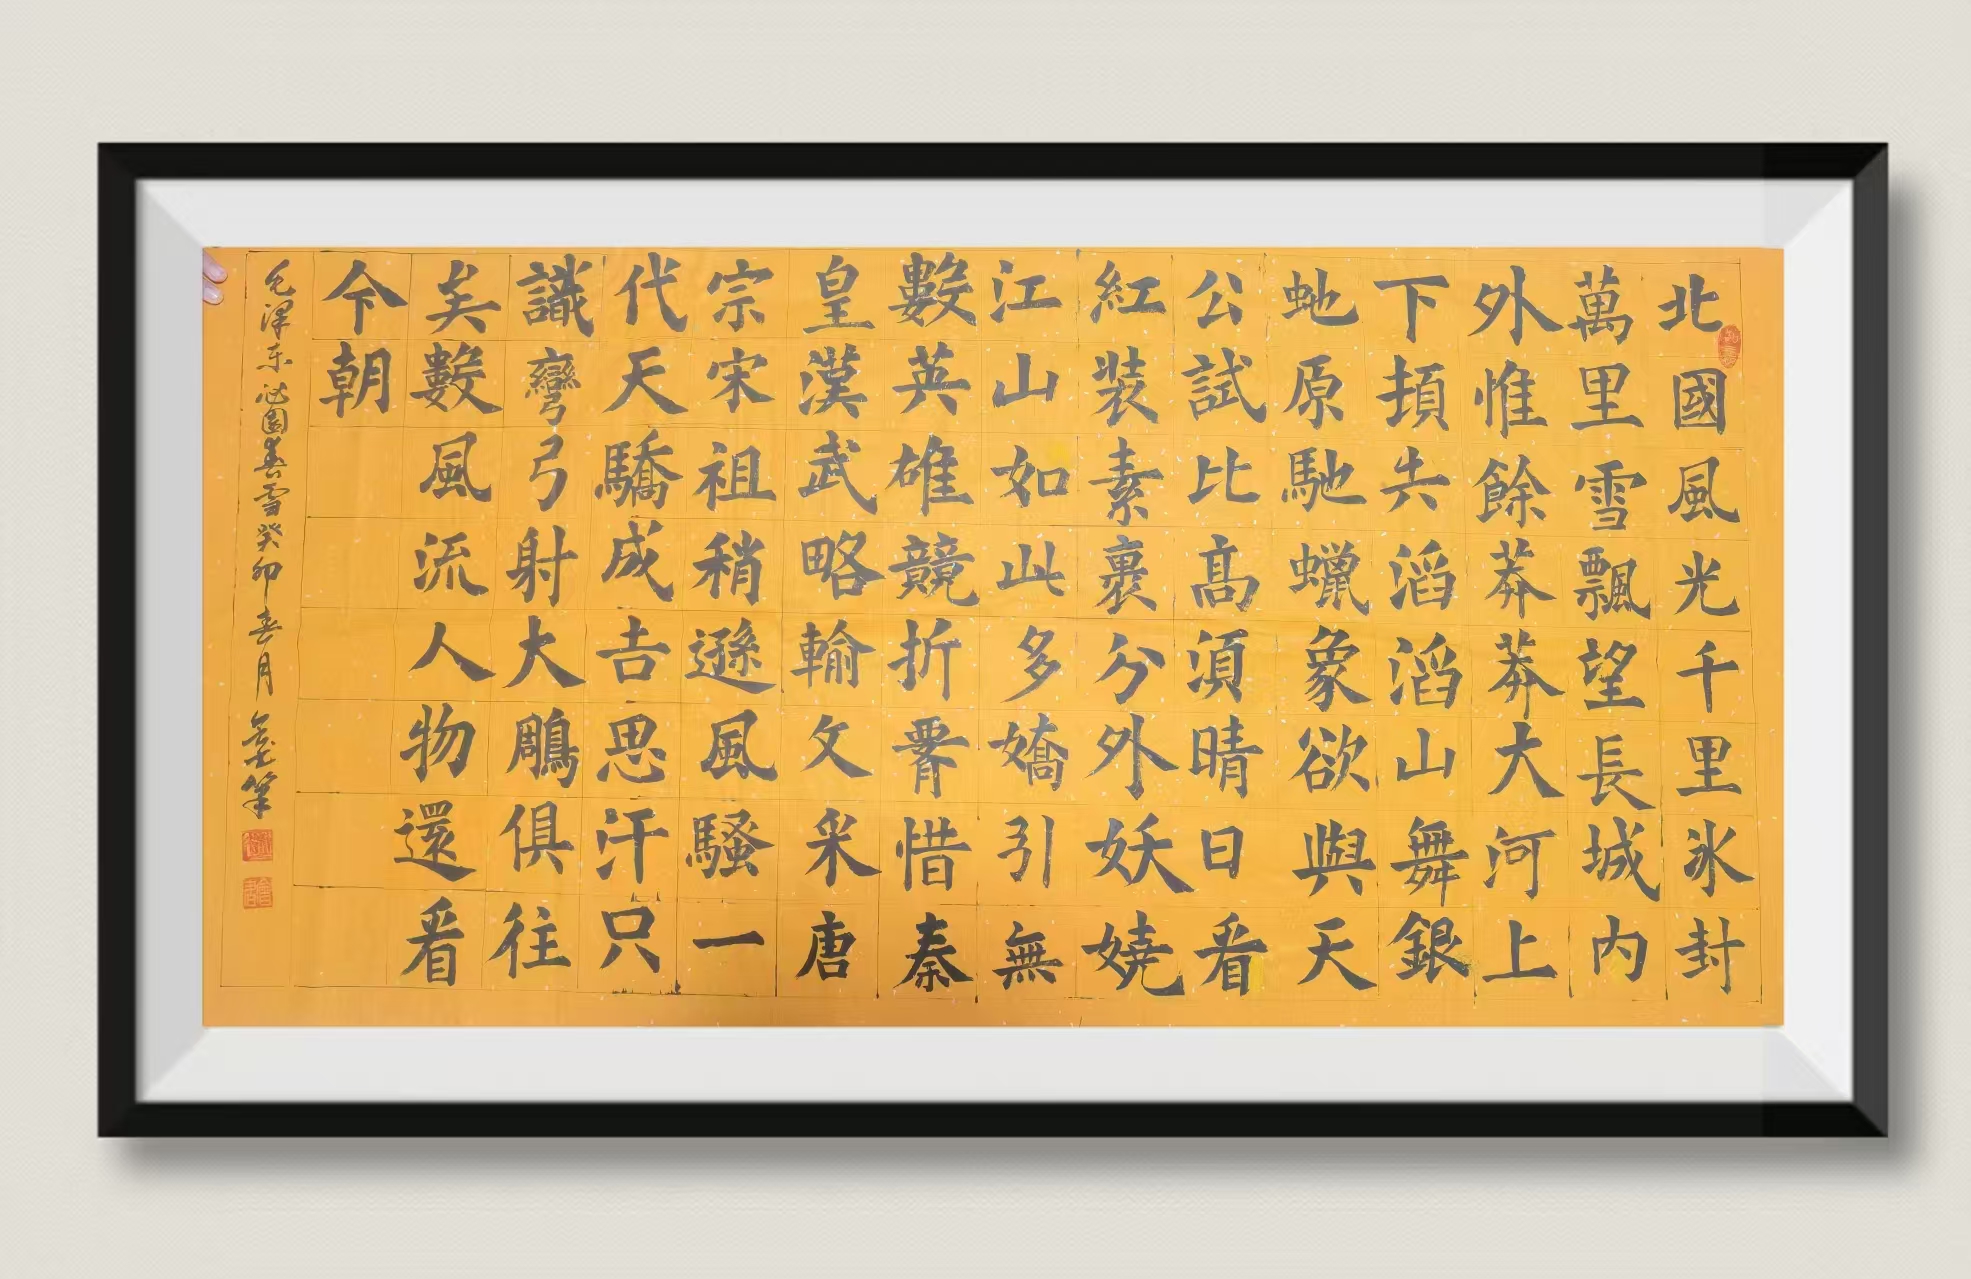 北國風光千里氷封
萬里雪飄望長城内
外惟餘莽莽大河上
下頓失滔滔山舞銀
虵原馳蠟象欲與天
公試比高須晴日看
紅装素裹分外妖嬈
江山如此多嬌引無
數英雄競折惜秦
皇漢武略輸文采唐
宗宋祖稍遜風騷一
代天驕成吉思汗只
識彎弓射大鵰俱往
矣數風流人物還看
今朝
毛澤东沁園春雪癸卯春月筆